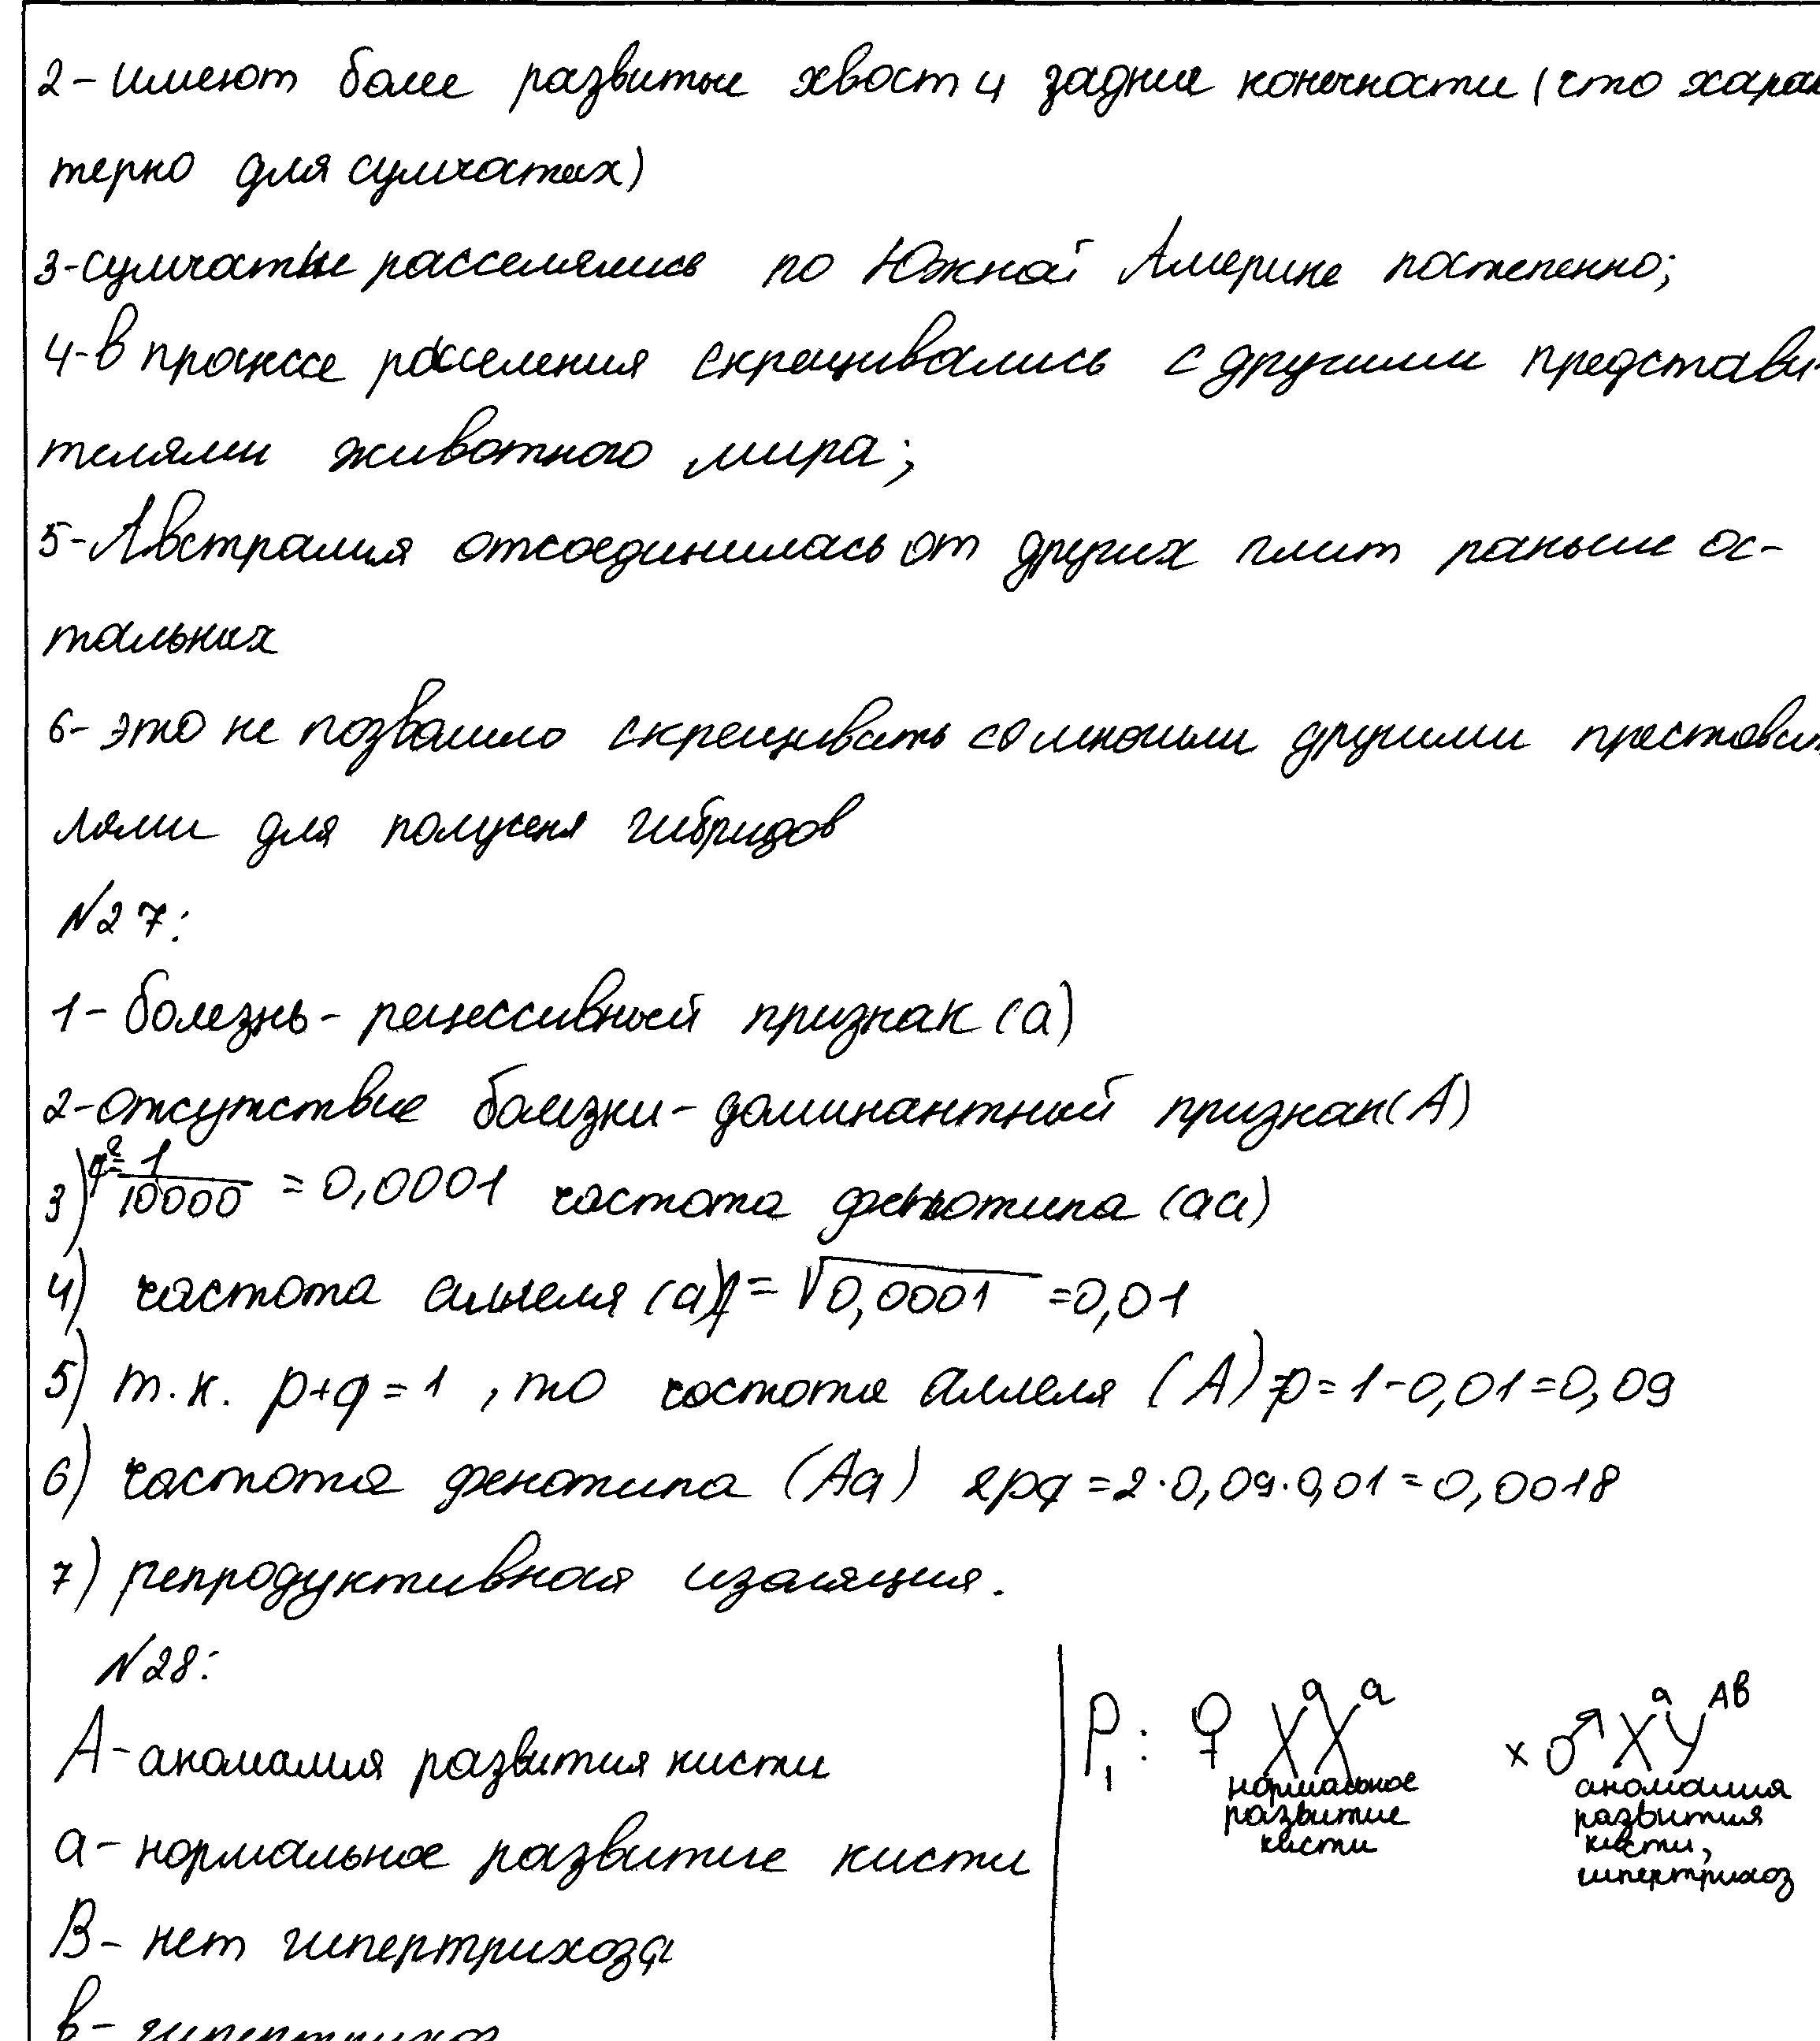 2- имеют более развитые хвост и задние конечности (что харак
терно для сумчатых)
3-сумчатые расселялись по Южной Америке постепенно;
4-в процессе расселения скрещивались с другими представи-
телями животного мира;
5-Австралия отсоединилась от других плит раньше ос-
тальных
6- это не позволило скрещивать со многими другими престовит
лями для полученя гибридов
№27:
1- болезнь- рецессивный признак (а)
2-отсутствие болезни- доминантный признак(А)
3) q²= 1/10000 = 0,0001 частота фенотипа (аа)
4) частота аллеля (а)q= √0,0001 =0,01
5) т.к. p+q=1, то частота аллеля (А)=p=1-0,01=0,09
6) частота фенотипа (Аа) 2pq=2·0,09·0,01=0,0018
7) репродуктивная изоляция.
№28:
А-аномалия развития кисти
а- нормальное развитие кисти
В- нет гипертрихоза
в- гипертрихоз
P₁: ♀ XᵃXᵃ x ♂ XᵃYᴬᴮ
нормальное развитие кисти
аномалия развития кисти, гипертрихоз